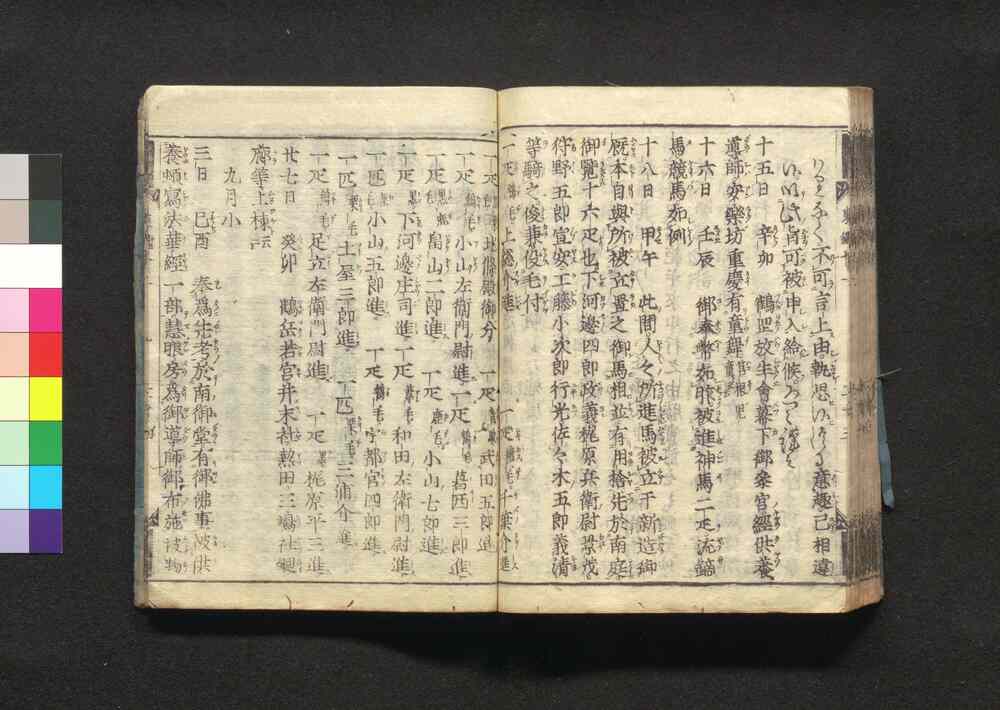 不可言上由執思 意趣已相違
皆可被申入給候
十五日 辛卯 鶴岡放生會幕下御參宮經供養
導師安樂坊重慶有童舞
十六日 壬辰 御奉幣如昨被進神馬二疋流鏑
馬競馬如例
十八日 甲午 此間人々所進馬被立于新造御
厩本自與所被立置之御馬相並有用捨先於南庭
御覽十六疋也下河邊四郎政義梶原兵衛尉景茂
狩野五郎宣安工藤小次郎行光佐々木五郎義清
等騎之俊兼役毛付
一疋 鴾毛 上総介進 一疋 千葉介進
一疋 北條殿御分 一疋 武田五郎進
一疋 鴾毛 小山左衛門尉進 一疋 鴾毛 葛西三郎進
一疋 黒 畠山二郎進 一疋 鹿毛 小山七郎進
一疋 黒 下河邊庄司進 一疋 和田左衛門尉進
一匹 黒 小山五郎進 一疋 鴾毛 宇都宮四郎進
一匹 栗毛 土屋三郎進 一匹 栗毛 三浦介進
一疋 鴾毛 足立左衛門尉進 一疋 黒 梶原平三進
廿七日 癸卯 鶴岳若宮并末社熱田三嶋社廻
廊等上棟云云
九月小
三日 己酉 奉爲先考於南御堂有御佛事被供
養頓寫法華經一部慧眼房爲御導師御布施被物